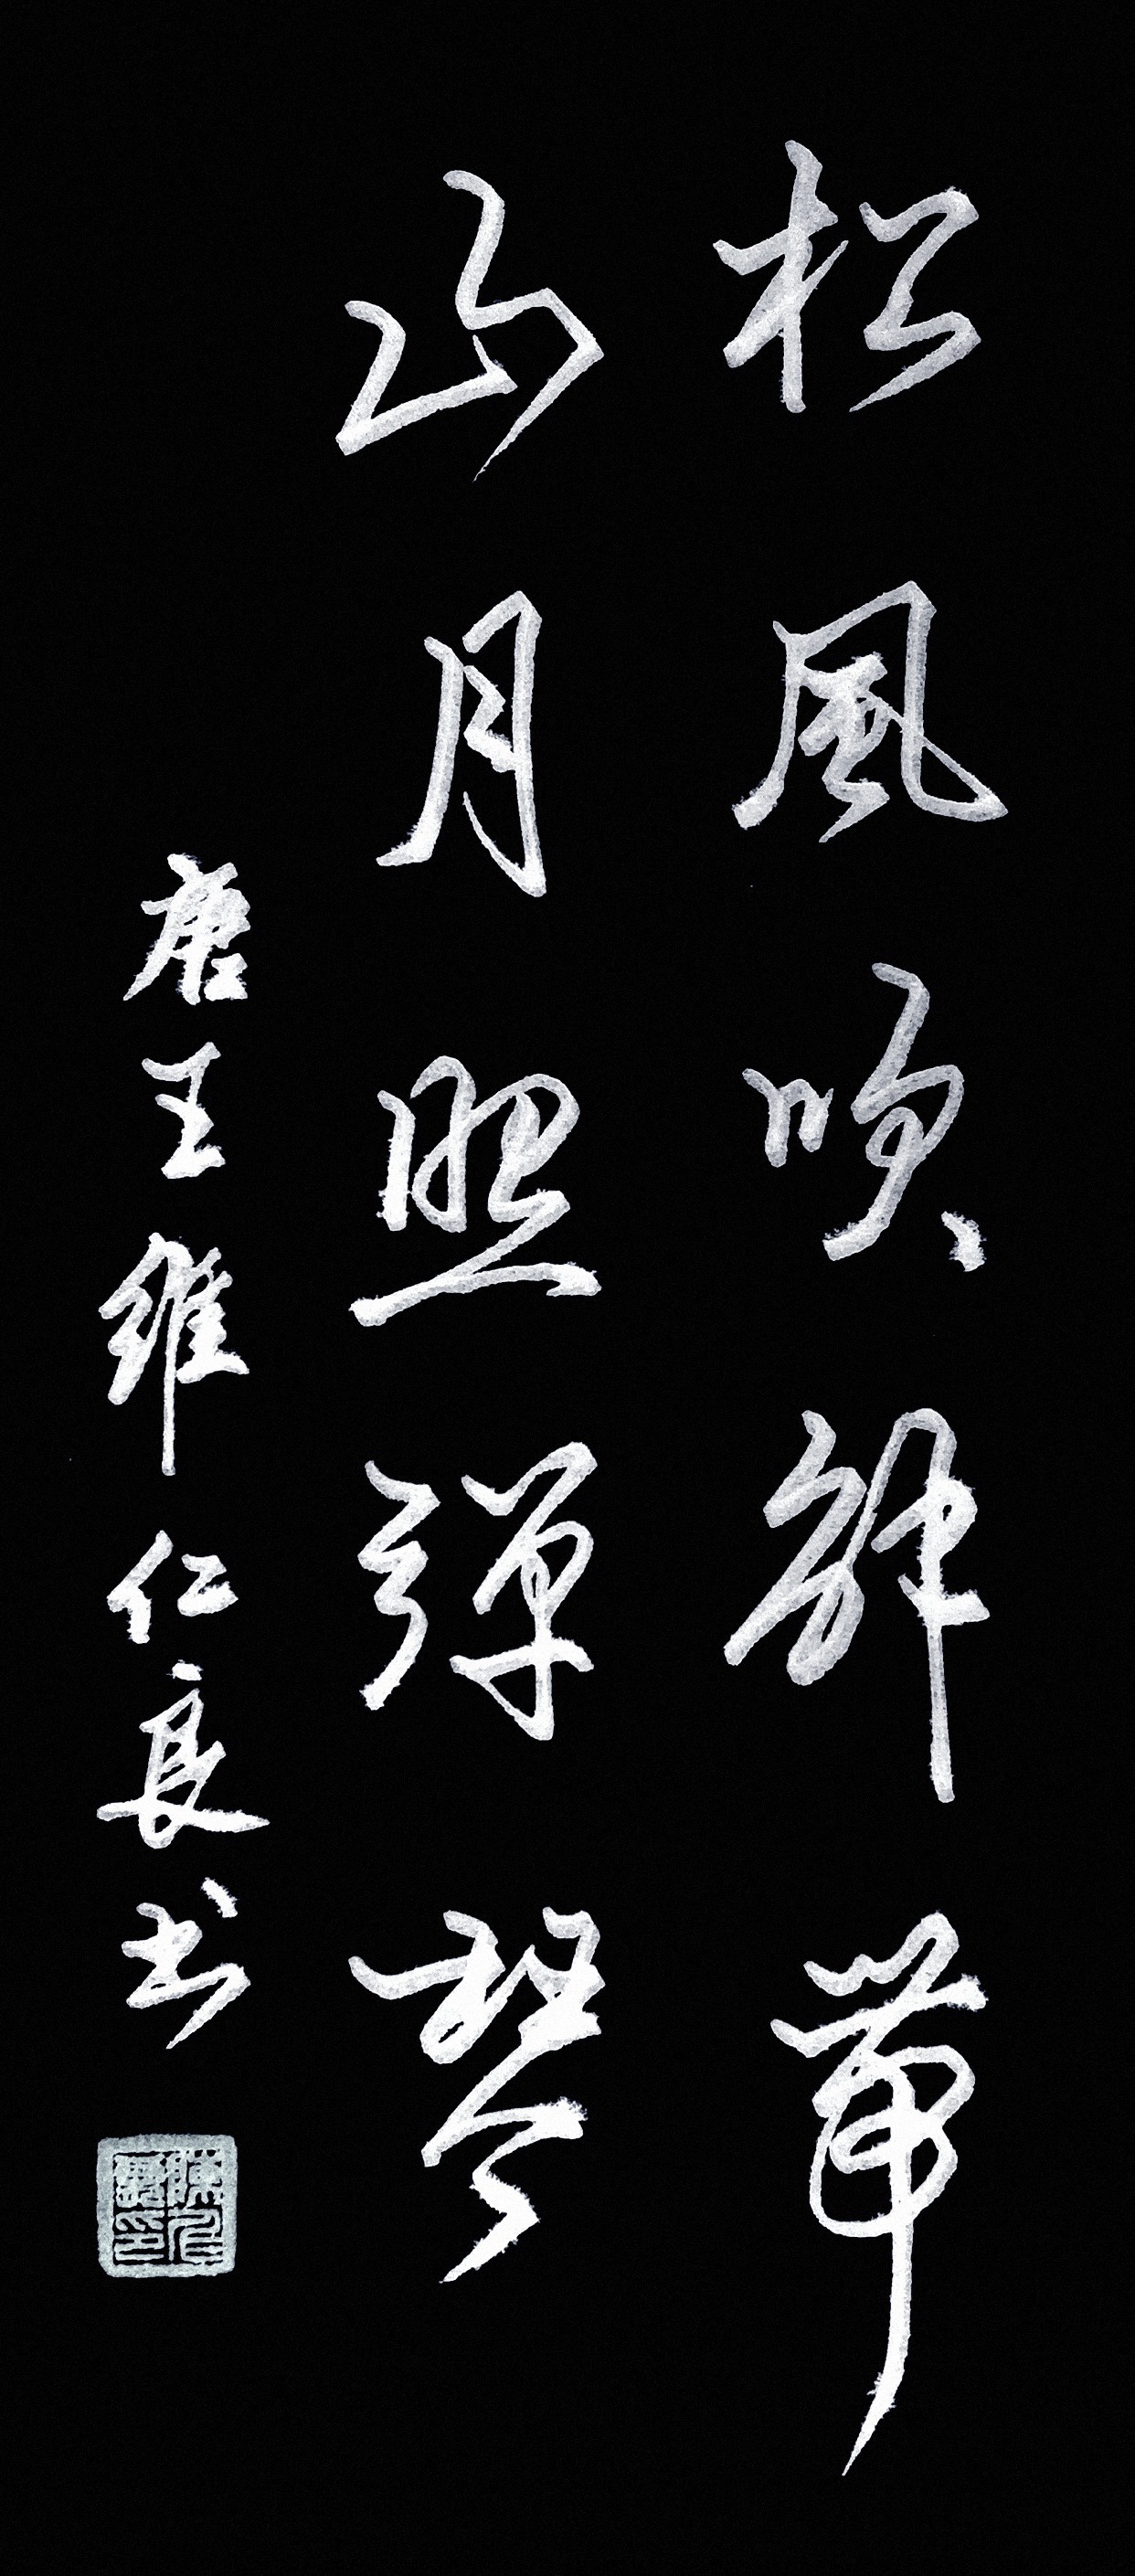 松風吹解帶
山月照彈琴
唐王維仁良书